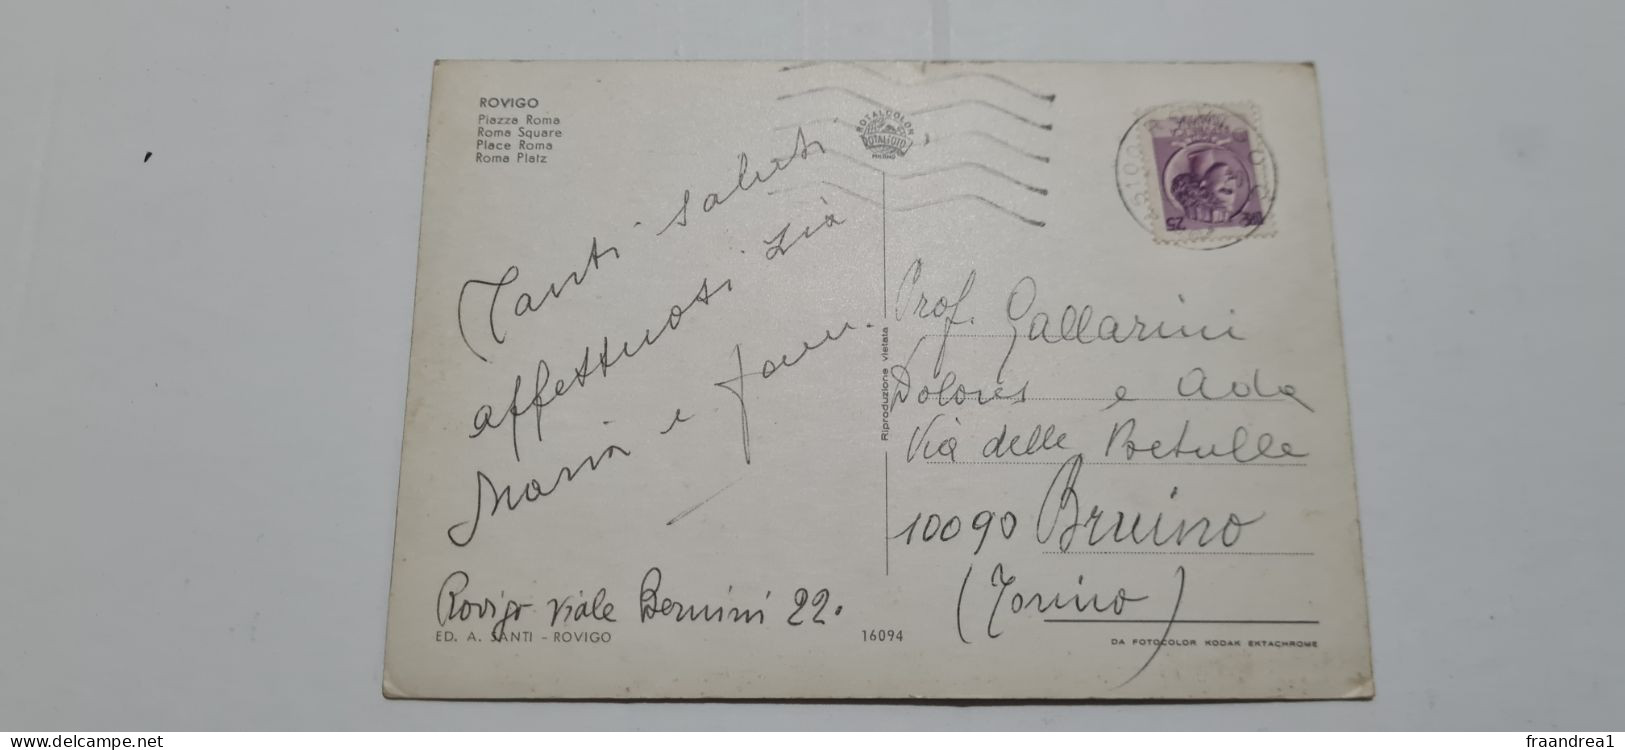 ROVIGO
Piazza Roma
Roma Square
Place Roma
Roma Platz
ROTALCOLOR
ROTALFOTO
MILANO
25
Tanti saluti
affettuosi Zià
Maria e
Rovigo viale Bernini 22.
ED. A. SANTI - ROVIGO
16094
Riproduzione vietata
Prof. Gallarini
Dolores e Ada
Via delle Betulle
10090 Bruino
(Torino)
DA FOTOCOLOR KODAK EKTACHROME
www.delcampe.net
fraandrea1